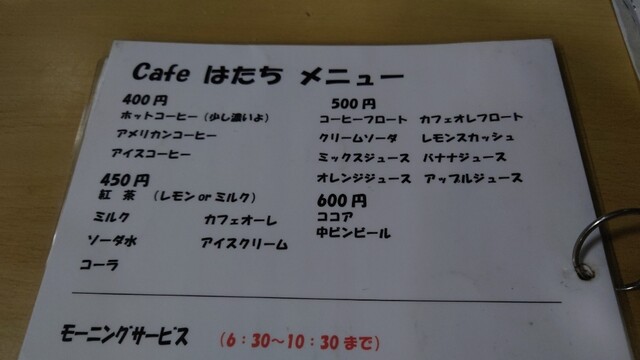 Cafe はたち メニュー
400円
ホットコーヒー(少し濃いよ)
アメリカンコーヒー
アイスコーヒー
450円
紅 茶 (レモン or ミルク)
ミルク カフェオーレ
ソーダ水 アイスクリーム
コーラ
500円
コーヒーフロート カフェオレフロート
クリームソーダ レモンスカッシュ
ミックスジュース バナナジュース
オレンジジュース アップルジュース
600円
ココア
中ビンビール
モーニングサービス (6:30~10:30まで)